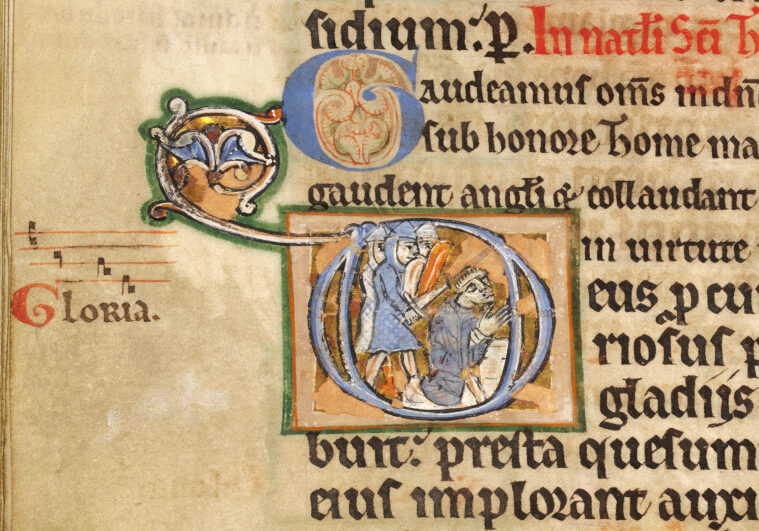 sidium. P. In natłi Scī Th
Gaudeamus om̄s in dn̄
sub honore Thome ma
gaudent angłi & collaudant
in uirtute
Deus p cui
riosus p
gladijs
buit: presta quesum
eius implorant auxi
Gloria.